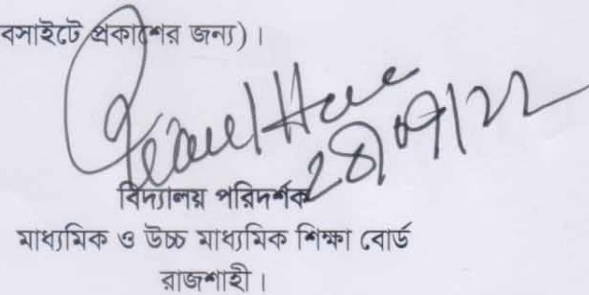 বসাইটে প্রকাশের জন্য)।
28/09/22
বিদ্যালয় পরিদর্শক
মাধ্যমিক ও উচ্চ মাধ্যমিক শিক্ষা বোর্ড
রাজশাহী।